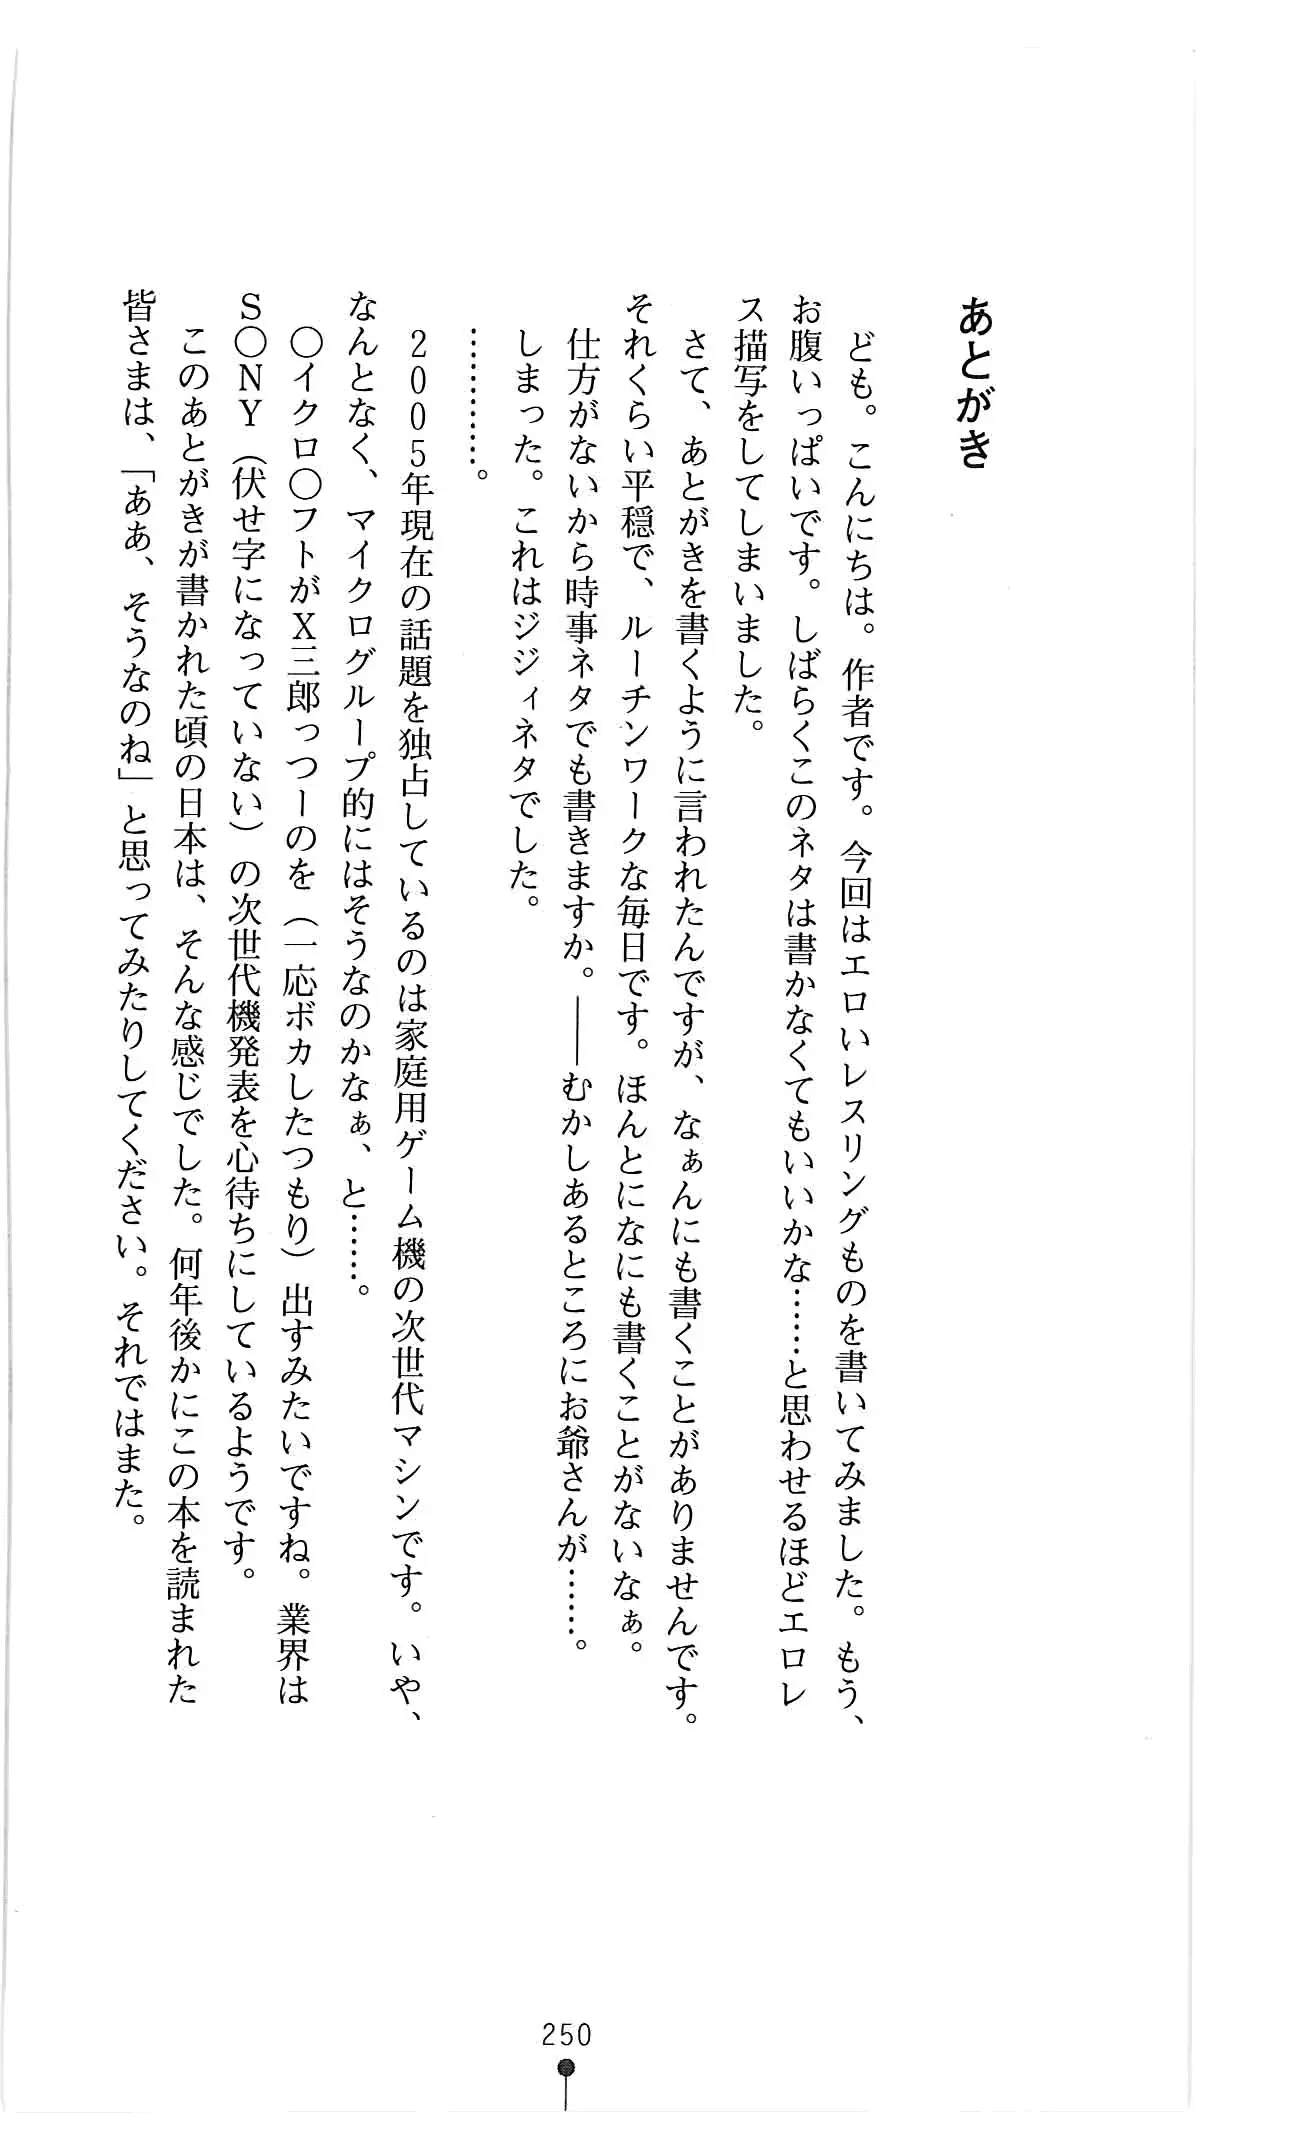 あとがき
ども。こんにちは。作者です。今回はエロいレスリングものを書いてみました。もう、
お腹いっぱいです。しばらくこのネタは書かなくてもいいかな……と思わせるほどエロレ
ス描写をしてしまいました。
さて、あとがきを書くように言われたんですが、なぁんにも書くことがありませんです。
それくらい平穏で、ルーチンワークな毎日です。ほんとになにも書くことがないなぁ。
仕方がないから時事ネタでも書きますか。――むかしあるところにお爺さんが……。
しまった。これはジジィネタでした。
…………。
２００５年現在の話題を独占しているのは家庭用ゲーム機の次世代マシンです。いや、
なんとなく、マイクログループ的にはそうなのかなぁ、と……。
〇イクロ〇フトがＸ三郎っつーのを（一応ボカしたつもり）出すみたいですね。業界は
Ｓ〇ＮＹ（伏せ字になっていない）の次世代機発表を心待ちにしているようです。
このあとがきが書かれた頃の日本は、そんな感じでした。何年後かにこの本を読まれた
皆さまは、「ああ、そうなのね」と思ってみたりしてください。それではまた。
250